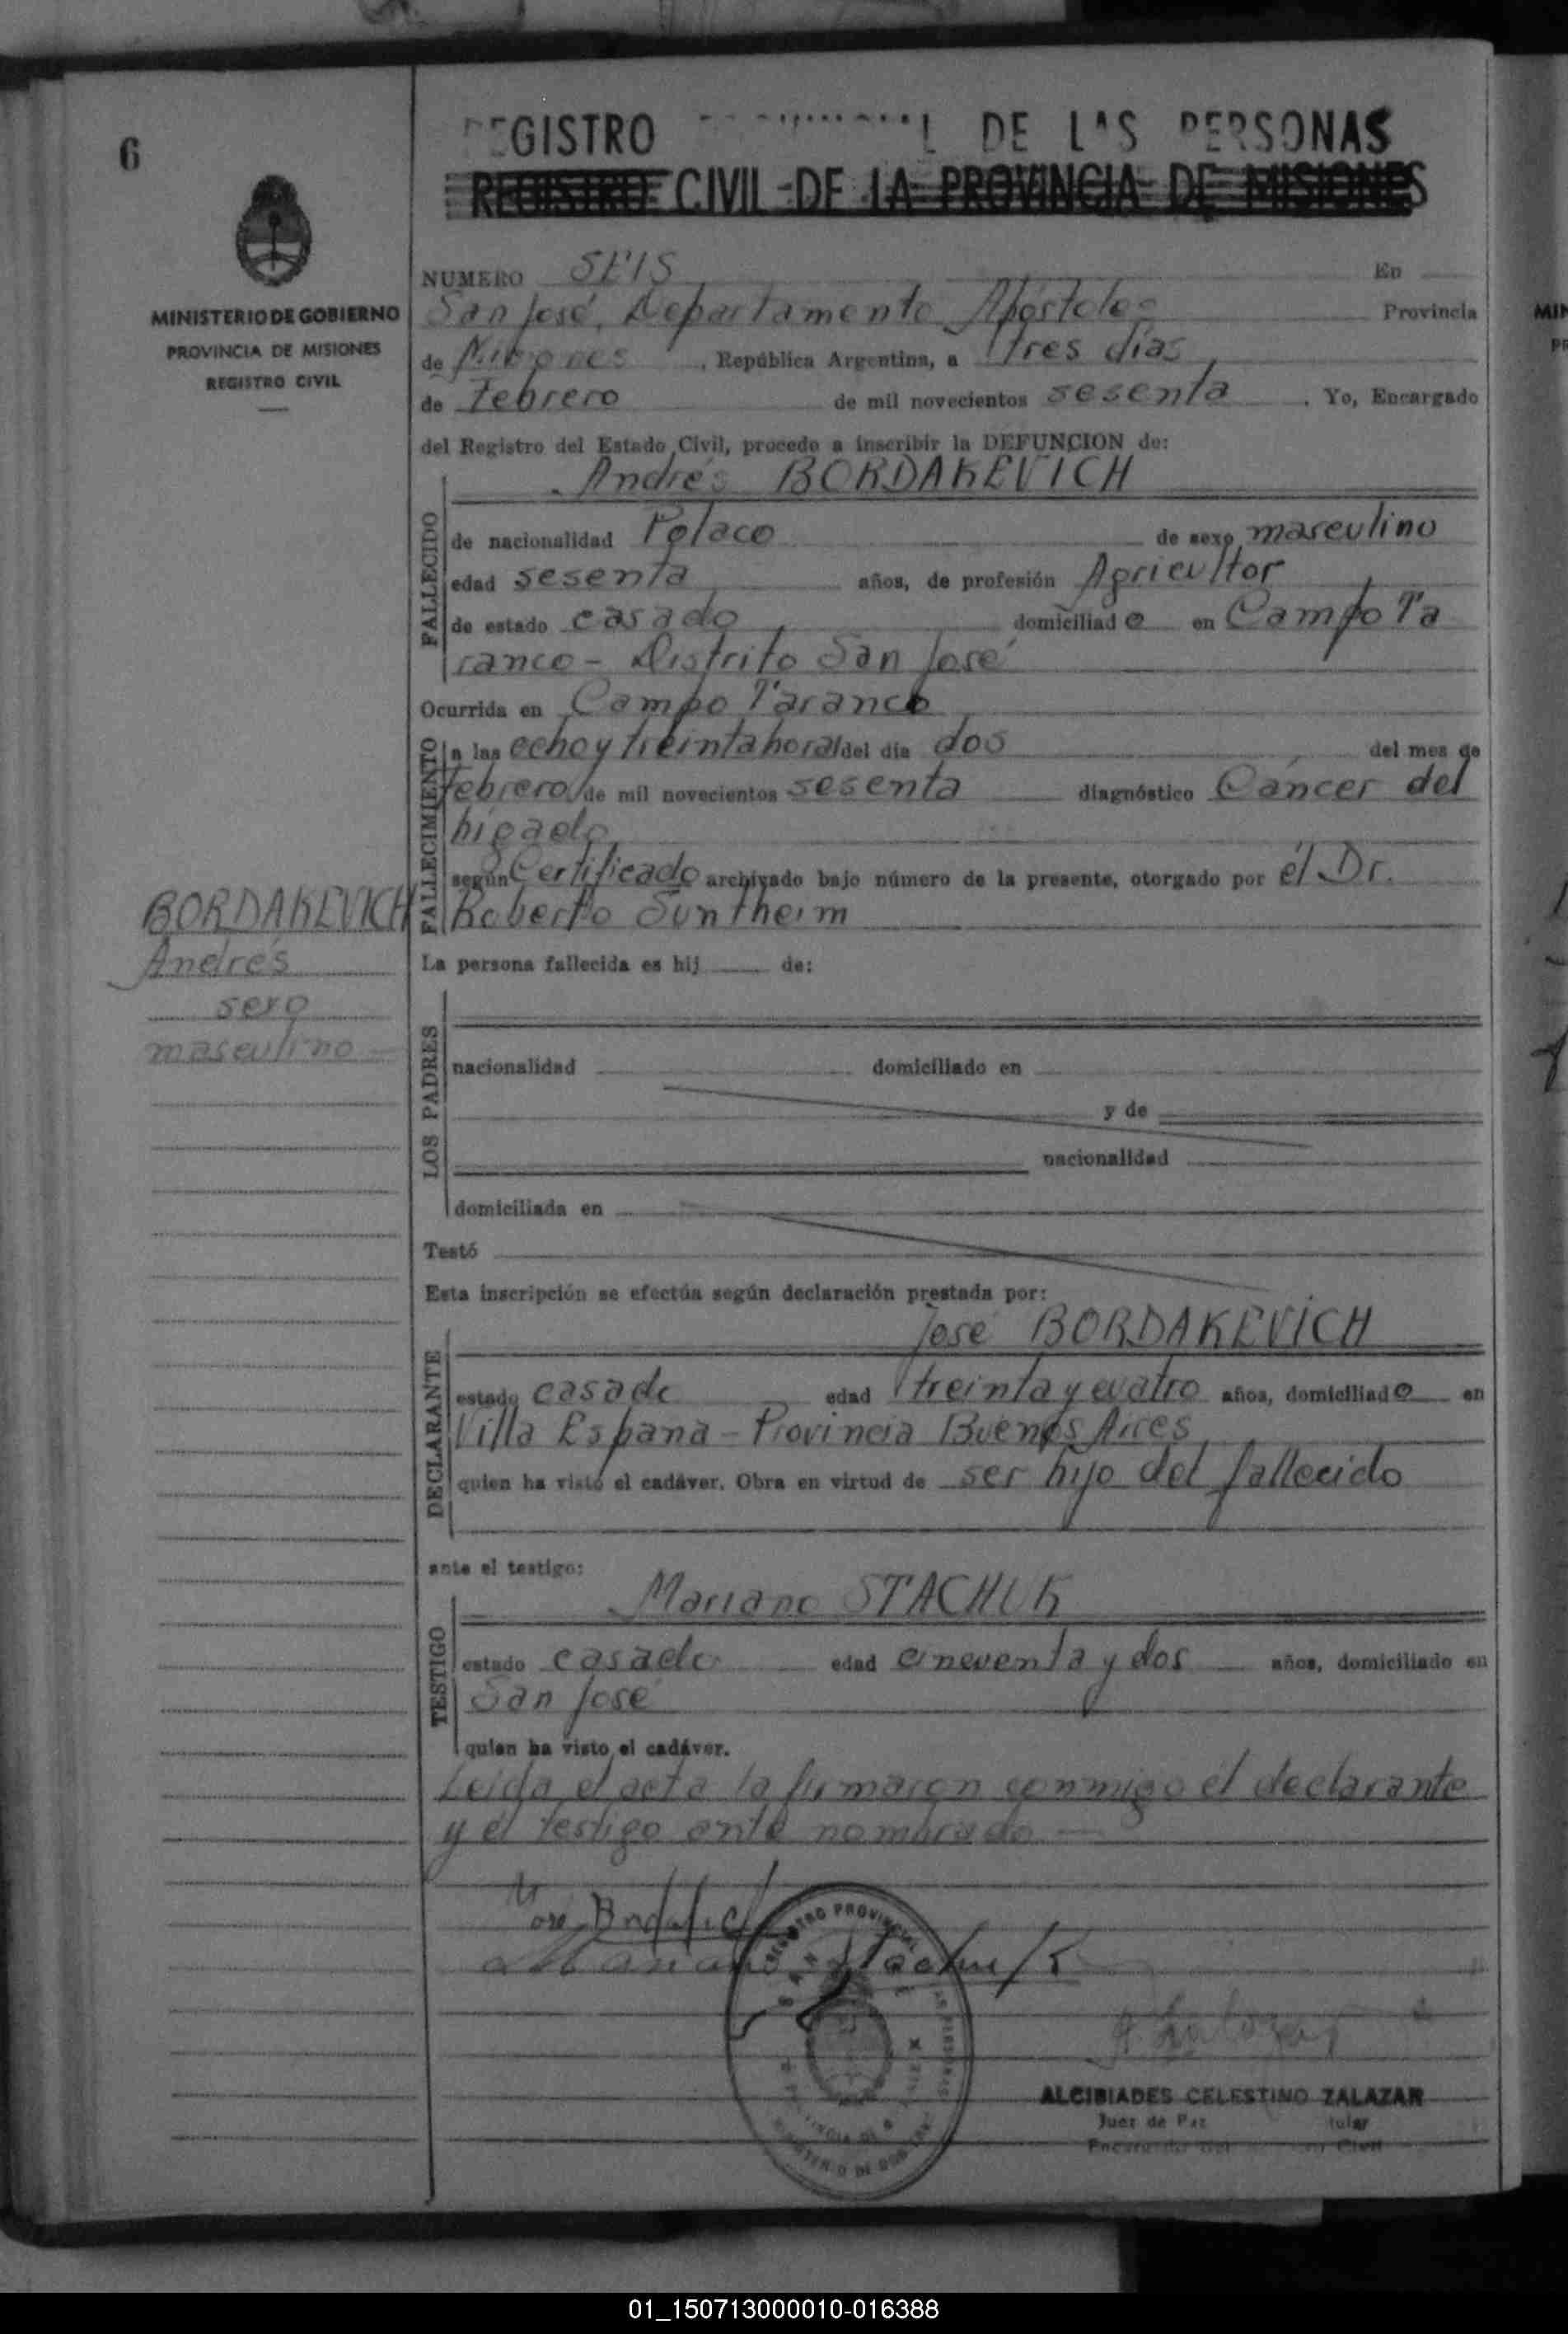 6
REGISTRO DE LAS PERSONAS
REGISTRO CIVIL DE LA PROVINCIA DE MISIONES
MINISTERIO DE GOBIERNO
PROVINCIA DE MISIONES
REGISTRO CIVIL
NUMERO SEIS En
San José, Departamento Apóstoles Provincia
de Misiones, República Argentina, a tres días
de Febrero de mil novecientos sesenta. Yo, Encargado
del Registro del Estado Civil, procedo a inscribir la DEFUNCION de:
Andrés BORDAKEVICH
FALLECIDO
de nacionalidad Polaco de sexo masculino
edad sesenta años, de profesión Agricultor
de estado casado domiciliado en Campo Ta
ranco - Distrito San José
Ocurrida en Campo Taranco
FALLECIMIENTO
a las ocho y treinta horas del día dos del mes de
Febrero de mil novecientos sesenta diagnóstico Cáncer del
higado
según Certificado archivado bajo número de la presente, otorgado por el Dr.
Roberto Suntheim
BORDAKEVICH
Andrés
sexo
masculino
La persona fallecida es hij de:
LOS PADRES
nacionalidad domiciliado en
y de
nacionalidad
domiciliada en
Testó
Esta inscripción se efectúa según declaración prestada por:
José BORDAKEVICH
DECLARANTE
estado casado edad treinta y cuatro años, domiciliado en
Villa España - Provincia Buenos Aires
quien ha visto el cadáver. Obra en virtud de ser hijo del fallecido
ante el testigo:
Mariano STACHUK
TESTIGO
estado casado edad cincuenta y dos años, domiciliado en
San José
quien ha visto el cadáver.
Leída el acta la firmaron conmigo el declarante
y el testigo ante nombrado
Mariano Stachuk
REGISTRO PROVINCIAL
ALCIBIADES CELESTINO ZALAZAR
Juez de Paz
Civil
01_150713000010-016388
MIN